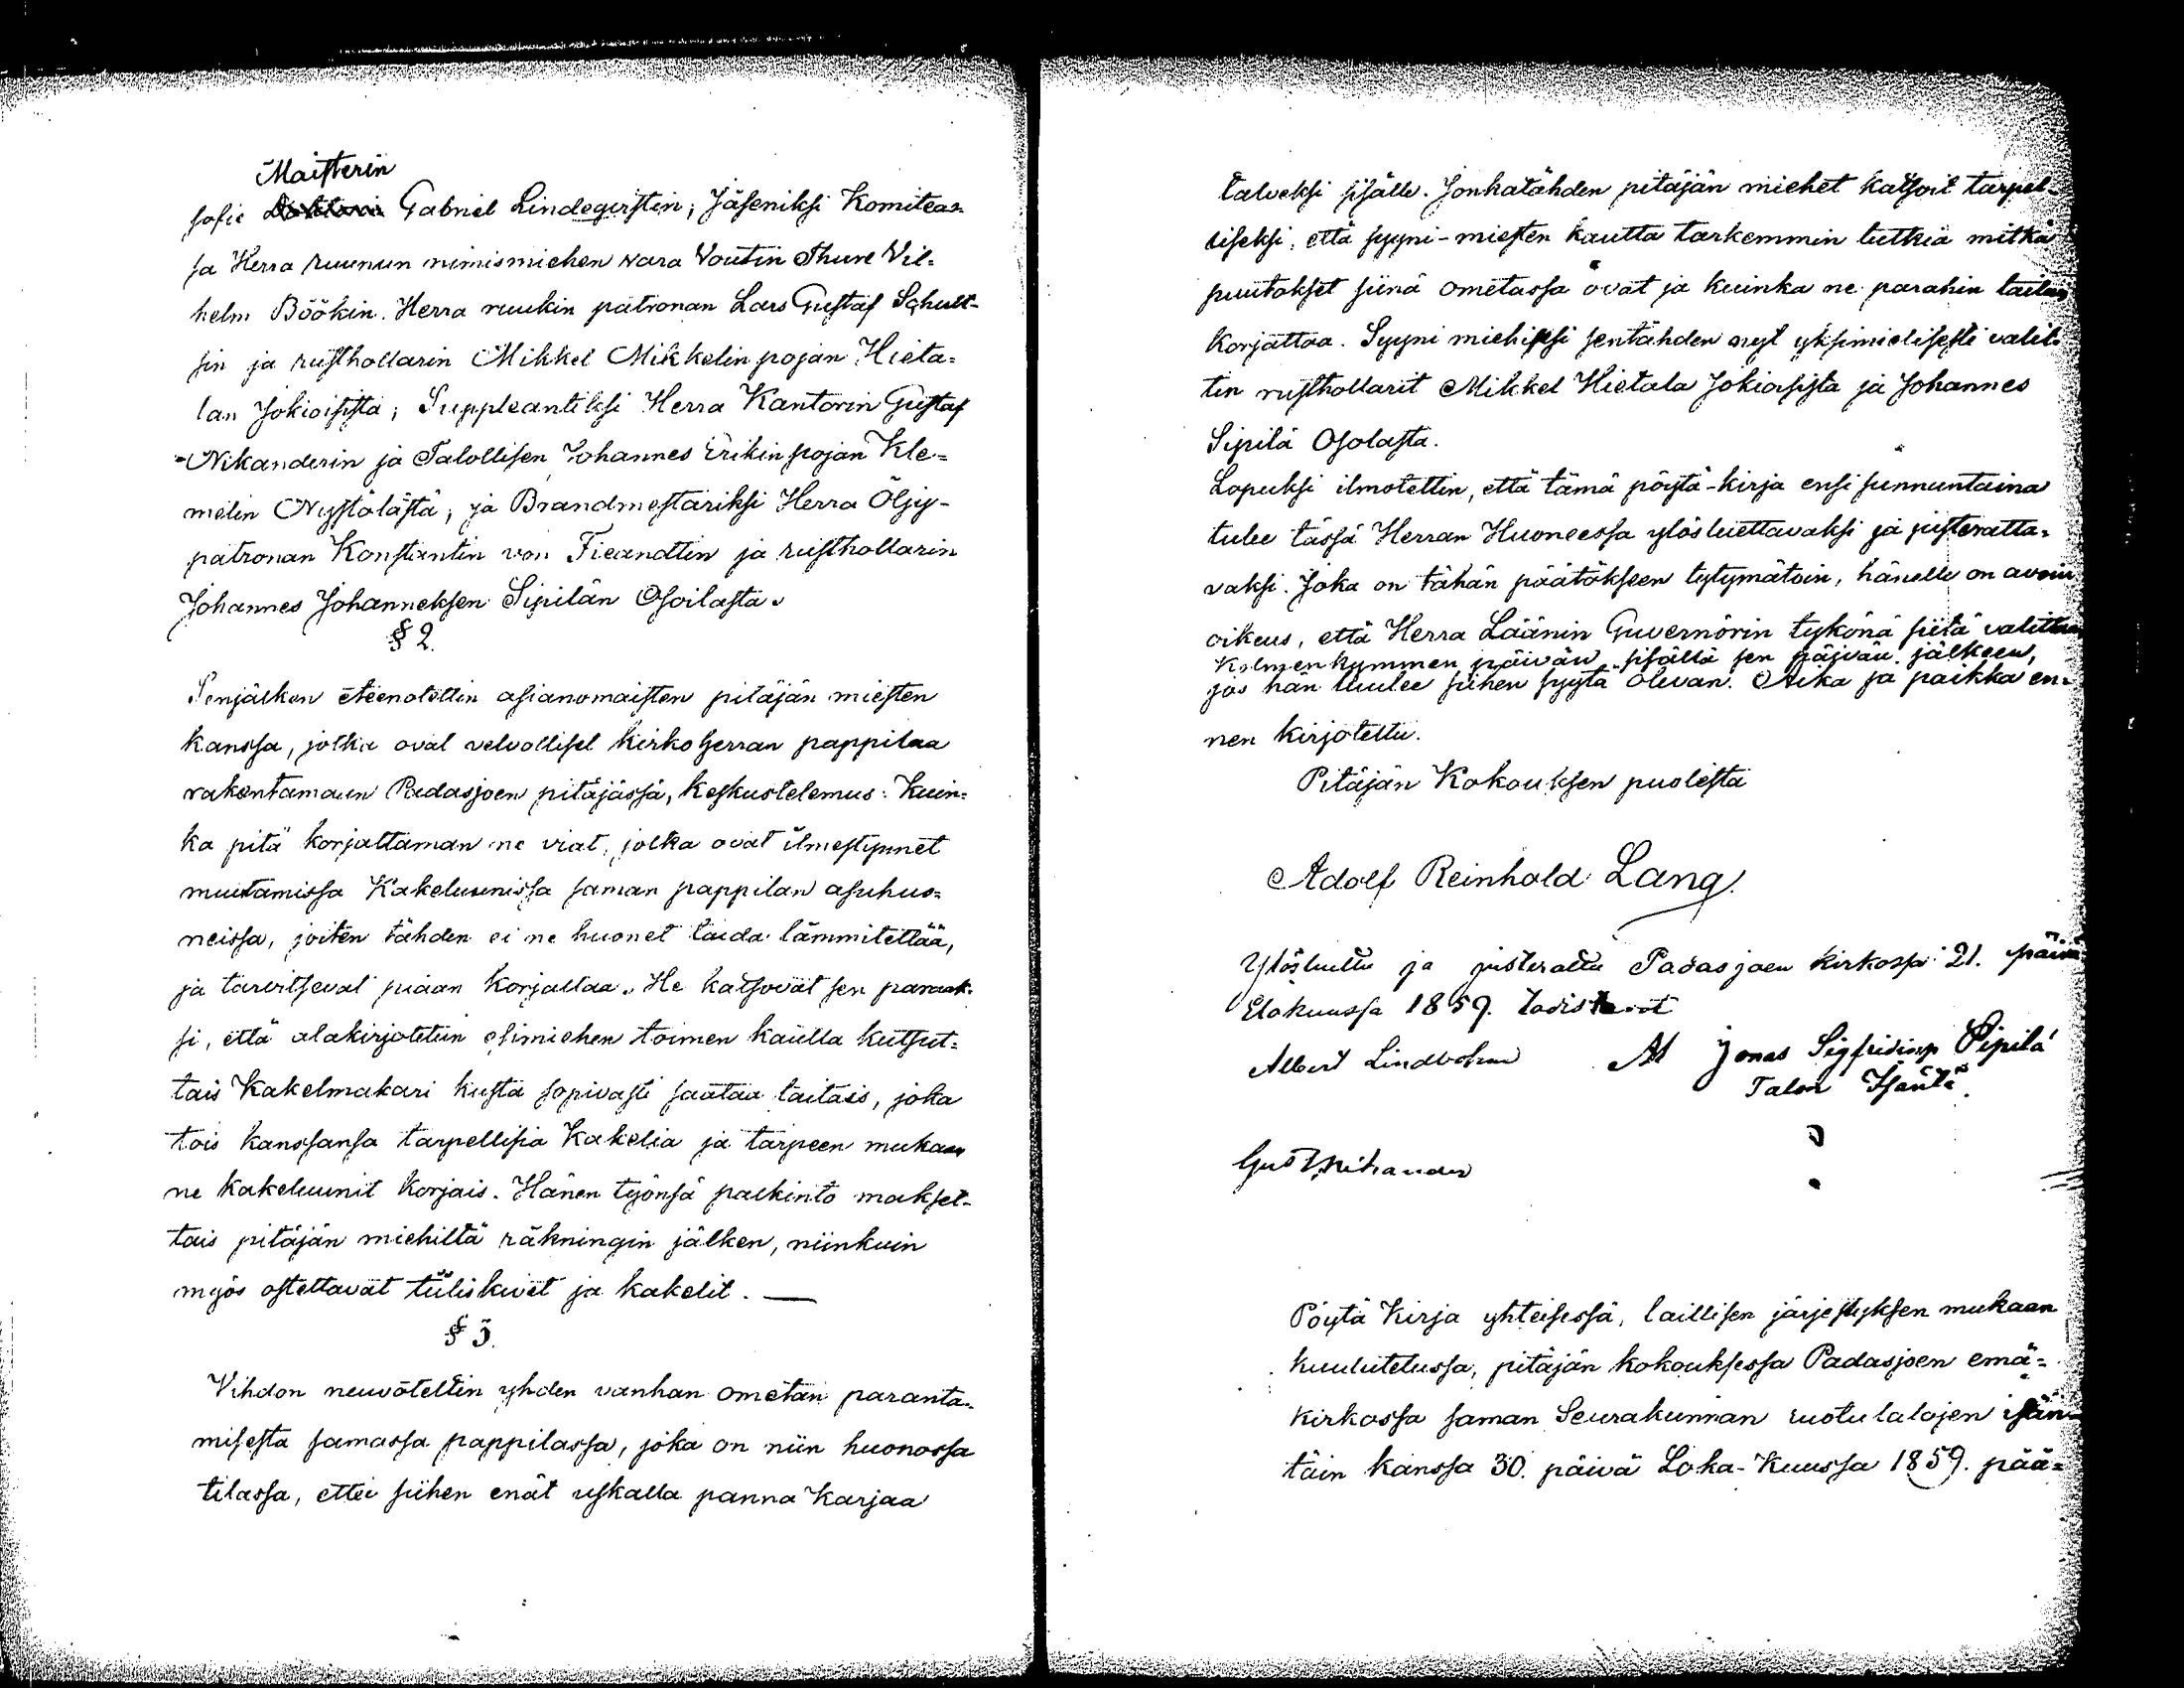 Maisterin
sofie Gabriel Lindeqvistin; Jäseniksi Komiteas-
sa Herra ruunun nimismiehen vara Voutin Thure Vil-
helm Böökin. Herra ruukin patronan Lars Gustaf Schult-
sin ja rusthollarin Mikkel Mikkelin pojan Hieta-
lan Jokioisista; Suppleantiksi Herra Kantorin Gustaf
Nikanderin ja Talollisen Johannes Erikin pojan Kle-
melin Nystölästä; ja Brandmestariksi Herra Öljy-
patronan Konstantin von Fieandtin ja rusthollarin
Johannes Johanneksen Sipilän Osoilasta.
§ 2.
Senjälken eteenotettin asianomaisten pitäjän miesten
kanssa, jotka ovat velvolliset kirkoherran pappilaa
rakentamaan Padasjoen pitäjässä, keskustelemus: Kuin-
ka pitä korjattaman ne viat, jotka ovat ilmestynnet
muutamissa Kakeluunissa saman pappilan asuhuo-
neissa, joiten tähden ei ne huonet taida lämmitettää,
ja tarvitsevat piaan korjattaa. He katsovat sen paraak-
si, että alakirjotetun esimiehen toimen kautta kutsut-
tais Kakelmakari kusta sopivasti saataa taitais, joka
tois kanssansa tarpellisia Kakelia ja tarpeen mukaan
ne kakeluunit korjais. Hänen työnsä palkinto makset-
tais pitäjän miehiltä räkningin jälken, niinkuin
myös ostettavat tiiliskivet ja kakelit. —
§ 3.
Vihdon neuvoteltin yhden vanhan ometan paranta-
misesta samassa pappilassa, joka on niin huonossa
tilassa, ettei siihen enät uskalla panna Karjaa
talveksi sisälle. Jonkatähden pitäjän miehet katsoit tarpel-
liseksi, että syyni-miesten kautta tarkemmin tutkia mitkä
puutokset siinä ometassa ovat ja kuinka ne parahin taitan
korjattaa. Syyni miehiksi sentähden nyt yksimielisesti valit-
tin rusthollarit Mikkel Hietala Jokioisista ja Johannes
Sipilä Osolasta.
Lopuksi ilmotettin, että tämä pöytä-kirja ensi sunnuntaina
tulee tässä Herran Huoneessa ylösluettavaksi ja justeratta-
vaksi. Joka on tähän päätökseen tytymätoin, hänelle on avoin
oikeus, että Herra Läänin Guvernörin tykönä siitä valittaa
Kolmenkymmen päivän sisällä sen päivän jälkeen,
jos hän luulee siihen syytä olevan. Aika ja paikka en-
nen kirjotettu.
Pitäjän Kokouksen puolesta
Adolf Reinhold Lang.
Ylösluettu ja justerattu Padasjoen kirkossa 21. päivä
Elokuussa 1859. todistavat
Albert Lindbohm Jonas Sigfridinp Sipilä
Talon Isäntä.
Gust Nikander
Pöytä Kirja yhteisessä, laillisen järjestyksen mukaan
kuulutetussa, pitäjän kokouksessa Padasjoen emä-
kirkossa saman Seurakunnan ruotulalojen isän-
täin kanssa 30. päivä Loka-Kuussa 1859. pää-